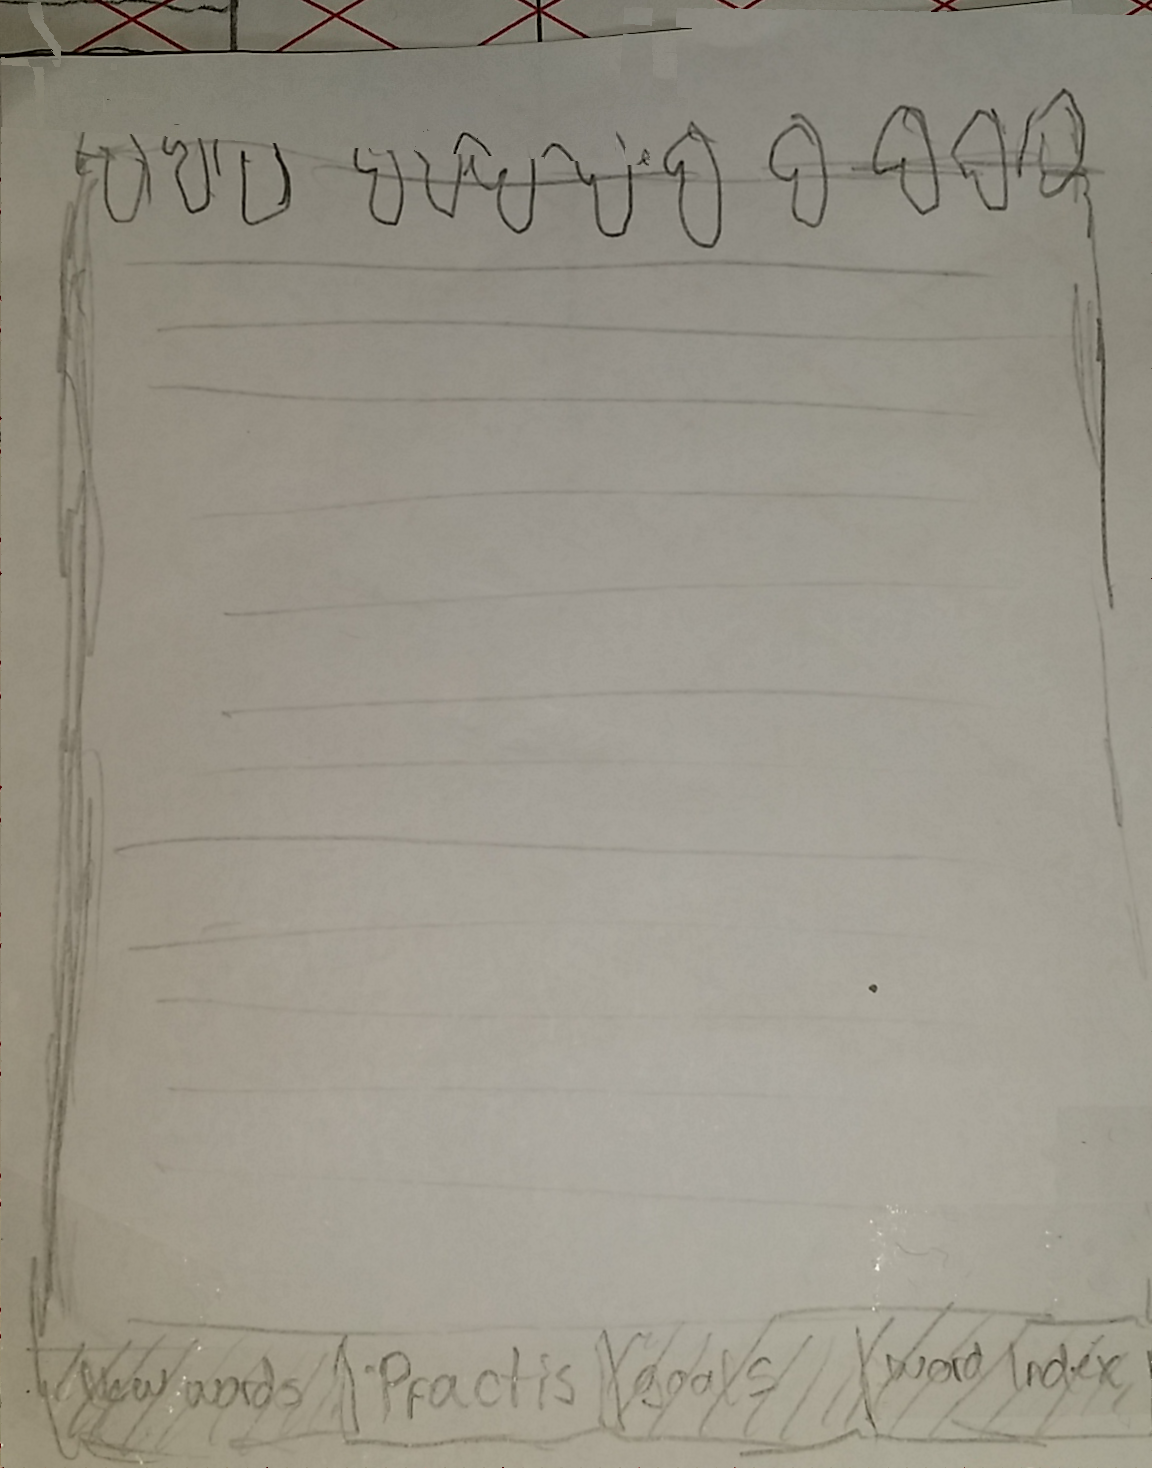 New words Practis goals word Index